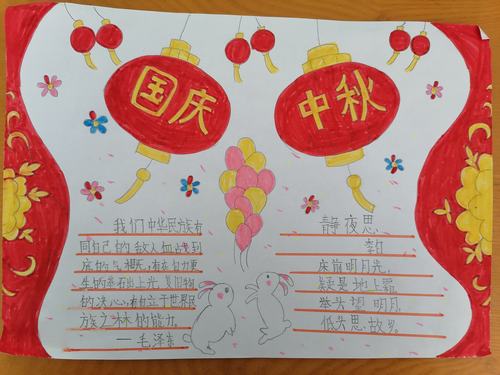 国庆
中秋
我们中华民族有
同自己的敌人血战到
底的气概,有在自力更
生的基石上光复旧物
的决心,有自立于世界民
族之林的能力。
——毛泽东
静夜思
李白
床前明月光,
疑是地上霜
举头望明月,
低头思故乡。